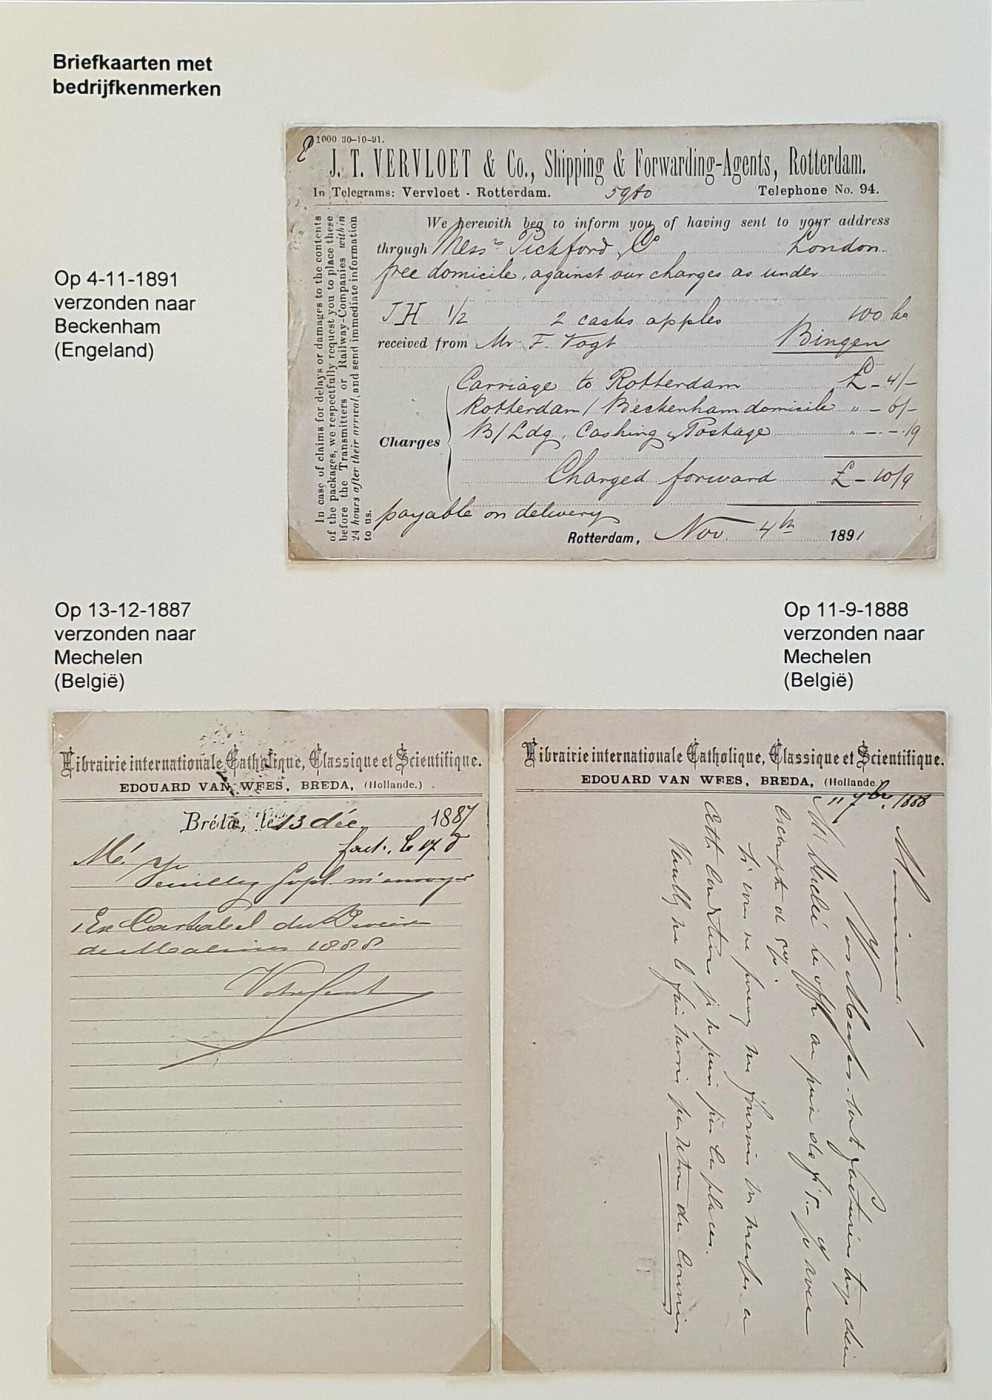 Briefkaarten met
bedrijfkenmerken
Op 4-11-1891
verzonden naar
Beckenham
(Engeland)
1000 30-10-91.
J. T. VERVLOET & Co., Shipping & Forwarding-Agents, Rotterdam.
In Telegrams: Vervloet - Rotterdam. 5980 Telephone No. 94.
We herewith beg to inform you of having sent to your address
through Mess rs Pickford & Co London
free domicile, against our charges as under
JH 1/2 2 casks apples 100 ko
received from Mr F. Vogt Bingen
Charges
Carriage to Rotterdam £ - 4/-
Rotterdam / Beckenham domicile " - 6/-
B/Ldg, Cashing & Postage " - - /9
Charged forward £ - 10/9
payable on delivery
Rotterdam, Nov 4th 1891
In case of claims for delays or damages to the contents
of the packages, we respectfully request you to place these
before the Transmitters or Railway-Companies within
24 hours after their arrival, and send immediate information
to us.
Op 13-12-1887
verzonden naar
Mechelen
(België)
Op 11-9-1888
verzonden naar
Mechelen
(België)
Librairie internationale Catholique, Classique et Scientifique.
EDOUARD VAN WEES, BREDA, (Hollande.)
Bréda, le 13 déc 1887
Veuillez m'envoyer
1 Ex
de Malines 1888
Librairie internationale Catholique, Classique et Scientifique.
EDOUARD VAN WEES, BREDA, (Hollande.)
11 7br 1888
Monsieur!
Vos Missels sont facturés trop cher
escompte de
Si vous ne pouvez me fournir les missels à
cette condition, je ne puis pas les placer.
Veuillez me le faire savoir par retour du Courrier